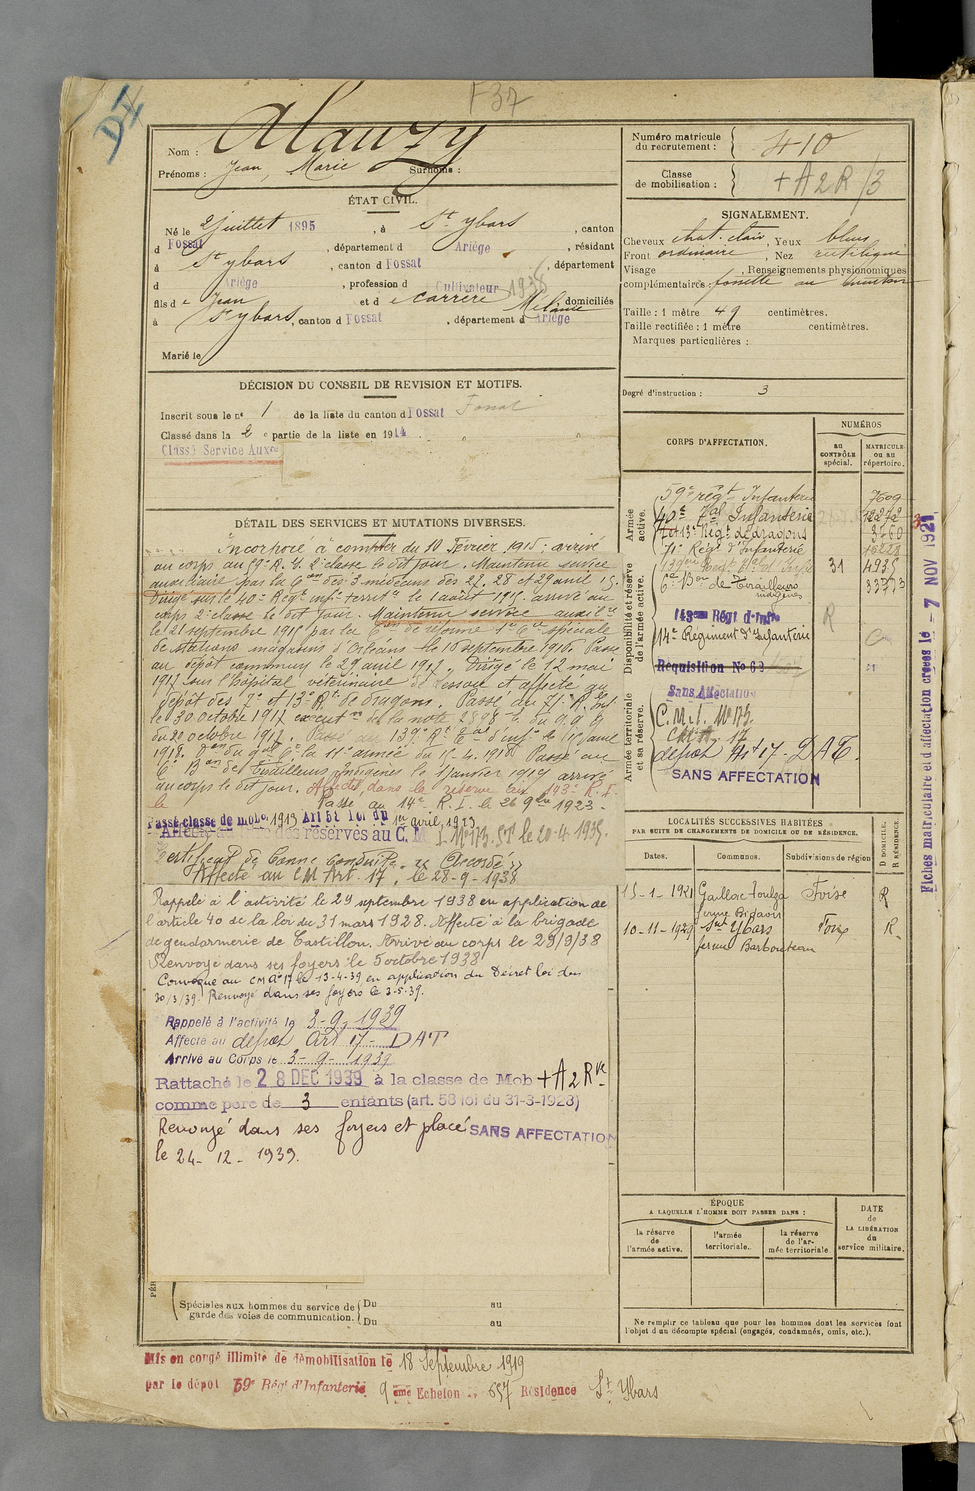 F37
DI
Nom : Alauzy
Prénoms : Jean, Marie Surnoms :
Numéro matricule du recrutement : 410
Classe de mobilisation : +A2R/3
ÉTAT CIVIL.
Né le 2 juillet 1895, à St Ybars, canton
d Fossat, département d Ariège, résidant
à St Ybars, canton d Fossat, département
d Ariège, profession d Cultivateur 1938
fils de Jean et de Carrère Mélanie domiciliés
à St Ybars, canton d Fossat, département d Ariège
Marié le
SIGNALEMENT.
Cheveux chat. clair, Yeux bleus
Front ordinaire, Nez rectiligne
Visage , Renseignements physionomiques
complémentaires : fossette au menton
Taille : 1 mètre 49 centimètres.
Taille rectifiée : 1 mètre centimètres.
Marques particulières :
Degré d'instruction : 3
DÉCISION DU CONSEIL DE REVISION ET MOTIFS.
Inscrit sous le n° 1 de la liste du canton d Fossat
Classé dans la 2e partie de la liste en 1914
Classé Service Auxre
DÉTAIL DES SERVICES ET MUTATIONS DIVERSES.
Incorporé à compter du 10 Février 1915 : arrivé
au corps au 59e R. I. 2e classe le dit jour. Maintenu service
auxiliaire par la Con des 3 médecins des 27. 28 et 29 avril 15.
Dirigé sur le 40e Régt infie territle le 1 août 1915. arrivé au
corps 2e classe le dit jour. Maintenu service auxilre
le 21 septembre 1915 par la Con de réforme
de stations magasins d'Orléans le 10 septembre 1916. Passé
au dépôt commun le 29 avril 1917. Dirigé le 12 mai
1917 sous l'hôpital vétérinaire de Lessau et affecté au
dépôt des 7e et 13e Rt de dragons. Passé au 71e R. Inf
le 30 octobre 1917 execution de la note 2898 du G.Q.G
du 20 octobre 1917. Passé 139e Rt d'infie le 15 avril
1918. Passé au
6e Bon de Tirailleurs Indigènes le 1 janvier 1919 arrivé
au corps le dit jour. Affecté dans la réserve au 143e R. I.
le Passé au 14e R. I. le 26 9bre 1923.
Passé classe de mobon 1913 Art 58 loi du 1er avril 1923
Affecté des réserves au C. M. I. N° 173. ST le 20-4-1935.
Certificat de Bonne Conduite "Accordé"
Affecté au CM Art. 17. le 28-9-1938
Rappelé à l'activité le 29 septembre 1938 en application de
l'article 40 de la loi du 31 mars 1928. Affecté à la brigade
de gendarmerie de Castillon. Arrivé au corps le 29/9/38
Renvoyé dans ses foyers le 5 octobre 1938
Convoqué au CM A° 17 le 13-4-39 en application du Décret loi du
30/3/39. Renvoyé dans ses foyers le 3-5-39.
Rappelé à l'activité le 3-9-1939
Affecté au dépôt art 17 - DAT
Arrivé au Corps le 3-9-1939
Rattaché le 28 DEC 1939 à la classe de Mob +A2Rve
comme père de 3 enfants (art. 58 loi du 31-3-1928)
Renvoyé dans ses foyers et placé SANS AFFECTATION
le 24-12-1939.
Spéciales aux hommes du service de garde des voies de communication.
Du au
Du au
CORPS D'AFFECTATION.
NUMÉROS
au CONTRÔLE spécial.
MATRICULE ou au répertoire.
Armée active.
59e régt Infanterie 7609
40e Tal Infanterie 12272
7e et 13e Régt de dragons 3460
71e Régt d'Infanterie 16228
Disponibilité et réserve de l'armée active.
139e Régt d'Infie 31 4935
6e Bon de Tirailleurs indigènes 33773
143eme Régt d'Infie R
14e Régiment d'Infanterie
Réquisition No 62
Armée territoriale et sa réserve.
Sans Affectation
C.M.I. N° 173.
C.M.A. 17
dépôt Art 17 - DAT.
SANS AFFECTATION
LOCALITÉS SUCCESSIVES HABITÉES
PAR SUITE DE CHANGEMENTS DE DOMICILE OU DE RÉSIDENCE.
Dates. Communes. Subdivisions de région D DOMICILE. R RÉSIDENCE.
15-1-1921 Gaillac Toulza Foix R
10-11-1929 Snt Ybars Foix R.
ferme Barbouteau
ÉPOQUE
A LAQUELLE L'HOMME DOIT PASSER DANS :
la réserve de l'armée active.
l'armée territoriale.
la réserve de l'armée territoriale
DATE de LA LIBÉRATION du service militaire.
Ne remplir ce tableau que pour les hommes dont les services font
l'objet d'un décompte spécial (engagés, condamnés, omis, etc.).
Fiches matriculaire et d'affectation créées le - 7 NOV 1921
Mis en congé illimité de démobilisation le 18 Septembre 1919
par le dépôt 59e Régt d'Infanterie 9eme Echelon n° 657 Résidence St Ybars